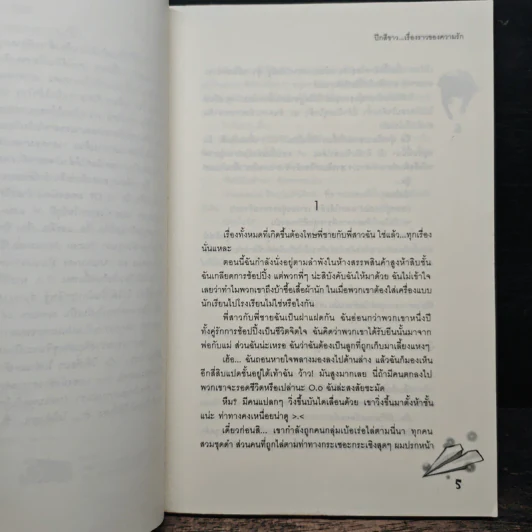 ปีกสีขาว...เรื่องราวของความรัก
1
เรื่องทั้งหมดที่เกิดขึ้นต้องโทษพี่ชายกับพี่สาวฉัน ใช่แล้ว...ทุกเรื่อง
นั่นแหละ
ตอนนี้ฉันกำลังนั่งอยู่ตามลำพังในห้างสรรพสินค้าสูงห้าสิบชั้น
ฉันเกลียดการช้อปปิ้ง แต่พวกพี่ๆ น่ะสิบังคับฉันให้มาด้วย ฉันไม่เข้าใจ
เลยว่าทำไมพวกเขาถึงบ้าซื้อเสื้อผ้านัก ในเมื่อพวกเขาต้องใส่เครื่องแบบ
นักเรียนไปโรงเรียนไม่ใช่หรือไงกัน
พี่สาวกับพี่ชายฉันเป็นฝาแฝดกัน ฉันอ่อนกว่าพวกเขาหนึ่งปี
ทั้งคู่รักการช้อปปิ้งเป็นชีวิตจิตใจ ฉันคิดว่าพวกเขาได้รับยีนนั้นมาจาก
พ่อกับแม่ ส่วนฉันน่ะเหรอ ฉันว่าฉันต้องเป็นลูกที่ถูกเก็บมาเลี้ยงแหงๆ
เฮ้อ... ฉันถอนหายใจพลางมองลงไปด้านล่าง แล้วฉันก็มองเห็น
อีกสี่สิบแปดชั้นอยู่ใต้เท้าฉัน ว้าว! มันสูงมากเลย นี่ถ้ามีคนตกลงไป
พวกเขาจะรอดชีวิตหรือเปล่านะ O.o ฉันล่ะสงสัยชะมัด
หืม? มีคนแปลกๆ วิ่งขึ้นบันไดเลื่อนด้วย เขาวิ่งขึ้นมาตั้งห้าชั้น
แน่ะ ท่าทางคงเหนื่อยน่าดู >.<
เดี๋ยวก่อนสิ... เขากำลังถูกคนกลุ่มเบ้อเร่อไล่ตามนี่นา ทุกคน
สวมชุดดำ ส่วนคนที่ถูกไล่ตามท่าทางกระเซอะกระเซิงสุดๆ ผมปรกหน้า
5